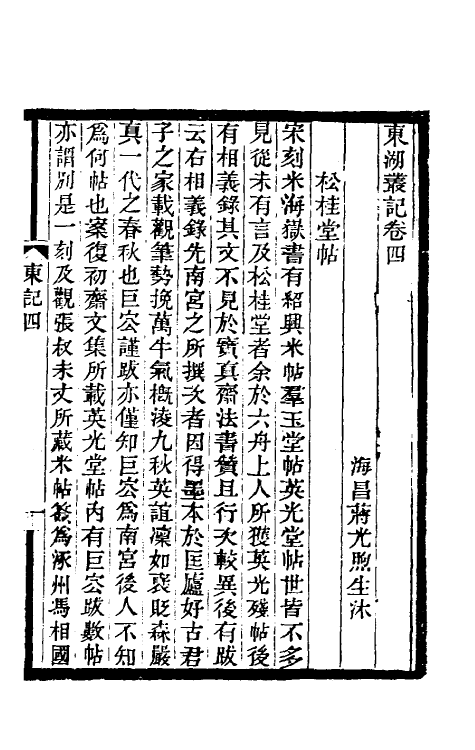 東湖叢記卷四
海昌蔣光煦生沐
松桂堂帖
宋刻米海嶽書有紹興米帖羣玉堂帖英光堂帖世皆不多
見從未有言及松桂堂者余於六舟上人所獲英光殘帖後
有相義錄其文不見於寶真齋法書贊且行次較異後有跋
云右相義錄先南宮之所撰次者因得墨本於匡廬好古君
子之家載觀筆勢挽萬牛氣概淩九秋英誼凜如袞貶森嚴
真一代之春秋也巨宏謹跋亦僅知巨宏為南宮後人不知
為何帖也案復初齋文集所載英光堂帖內有巨宏跋數帖
亦謂別是一刻及觀張叔未丈所藏米帖簽為涿州馮相國
東記四
一